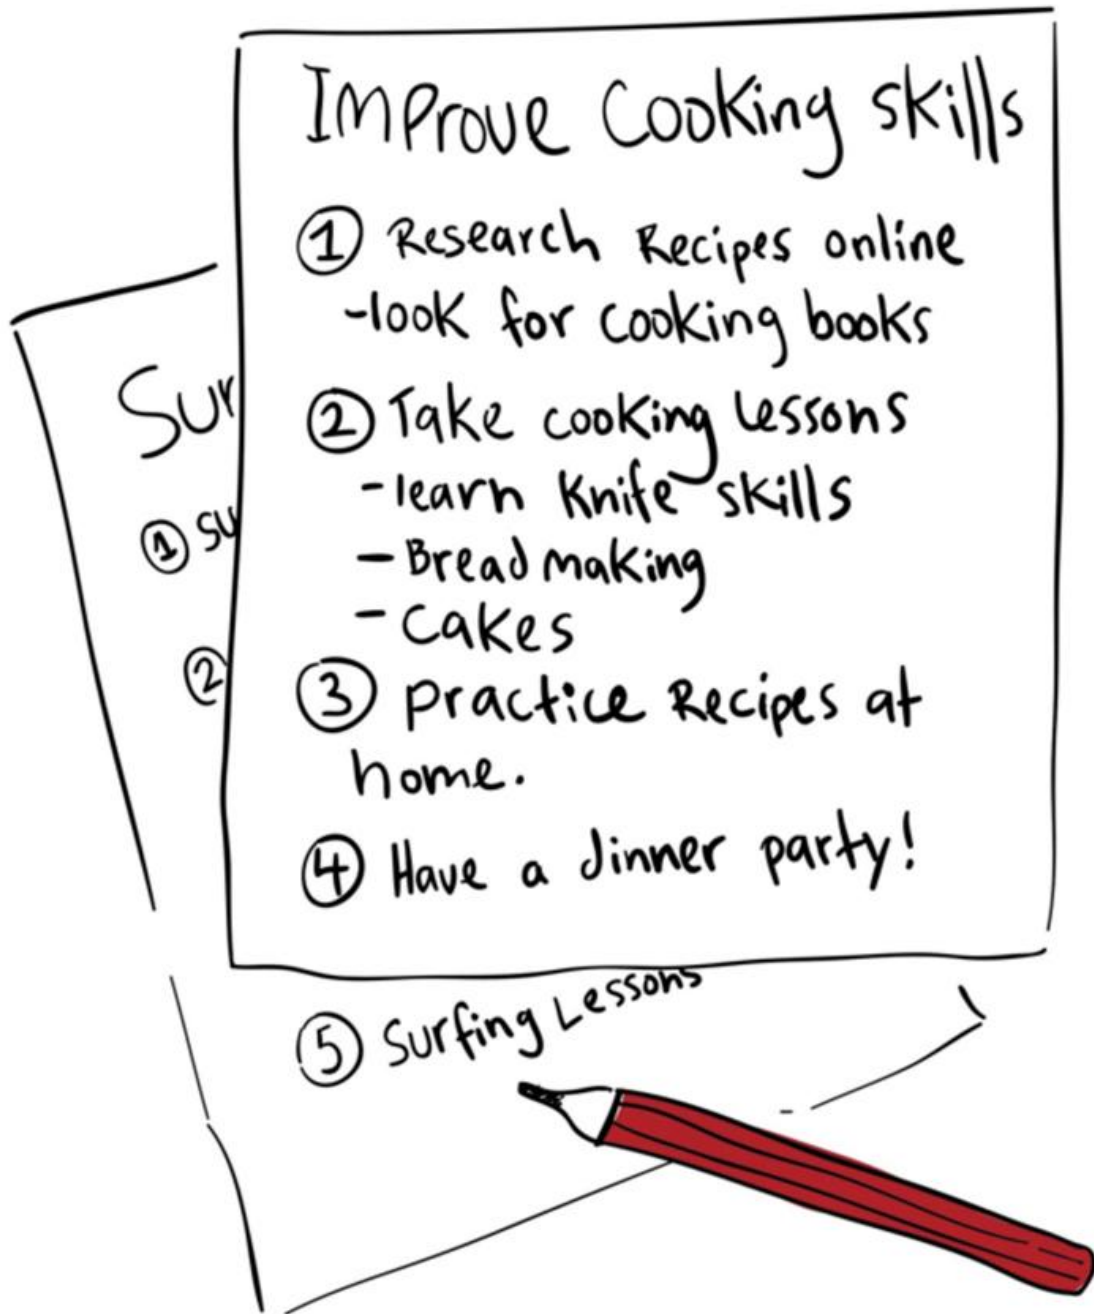 Improve Cooking skills
① Research Recipes online
-look for cooking books
② Take cooking Lessons
-learn Knife skills
- Bread making
- Cakes
③ practice Recipes at
home.
④ Have a dinner party!
Sur
① Su
②
⑤ Surfing Lessons